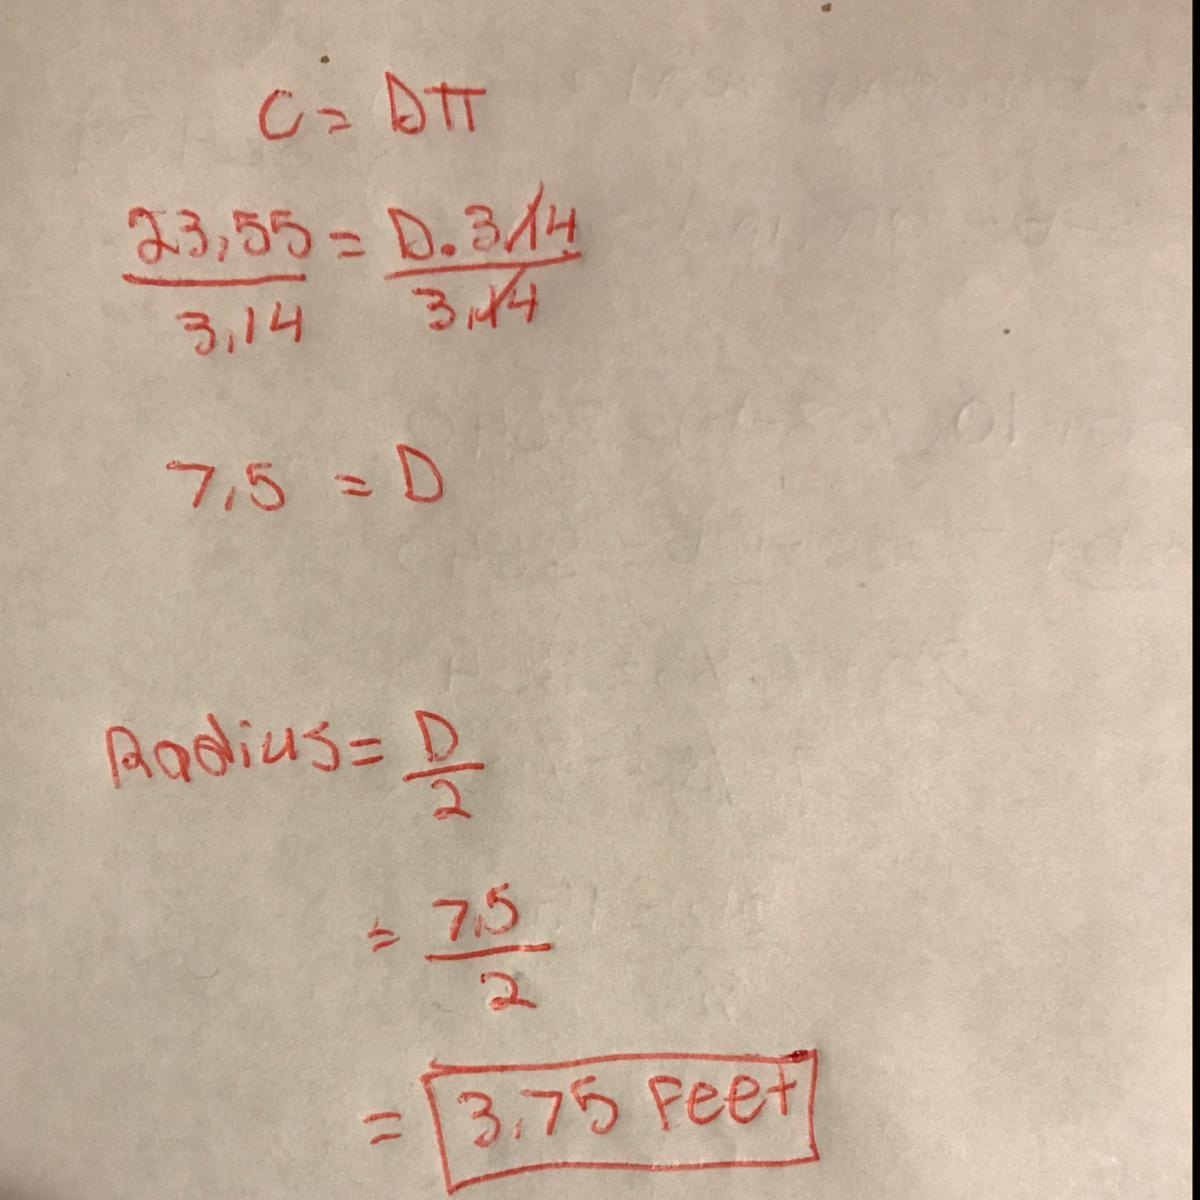 C = Dπ
23.55 = D . 3.14
3.14 3.14
7.5 = D
Radius = D
2
= 7.5
2
= 3.75 Feet